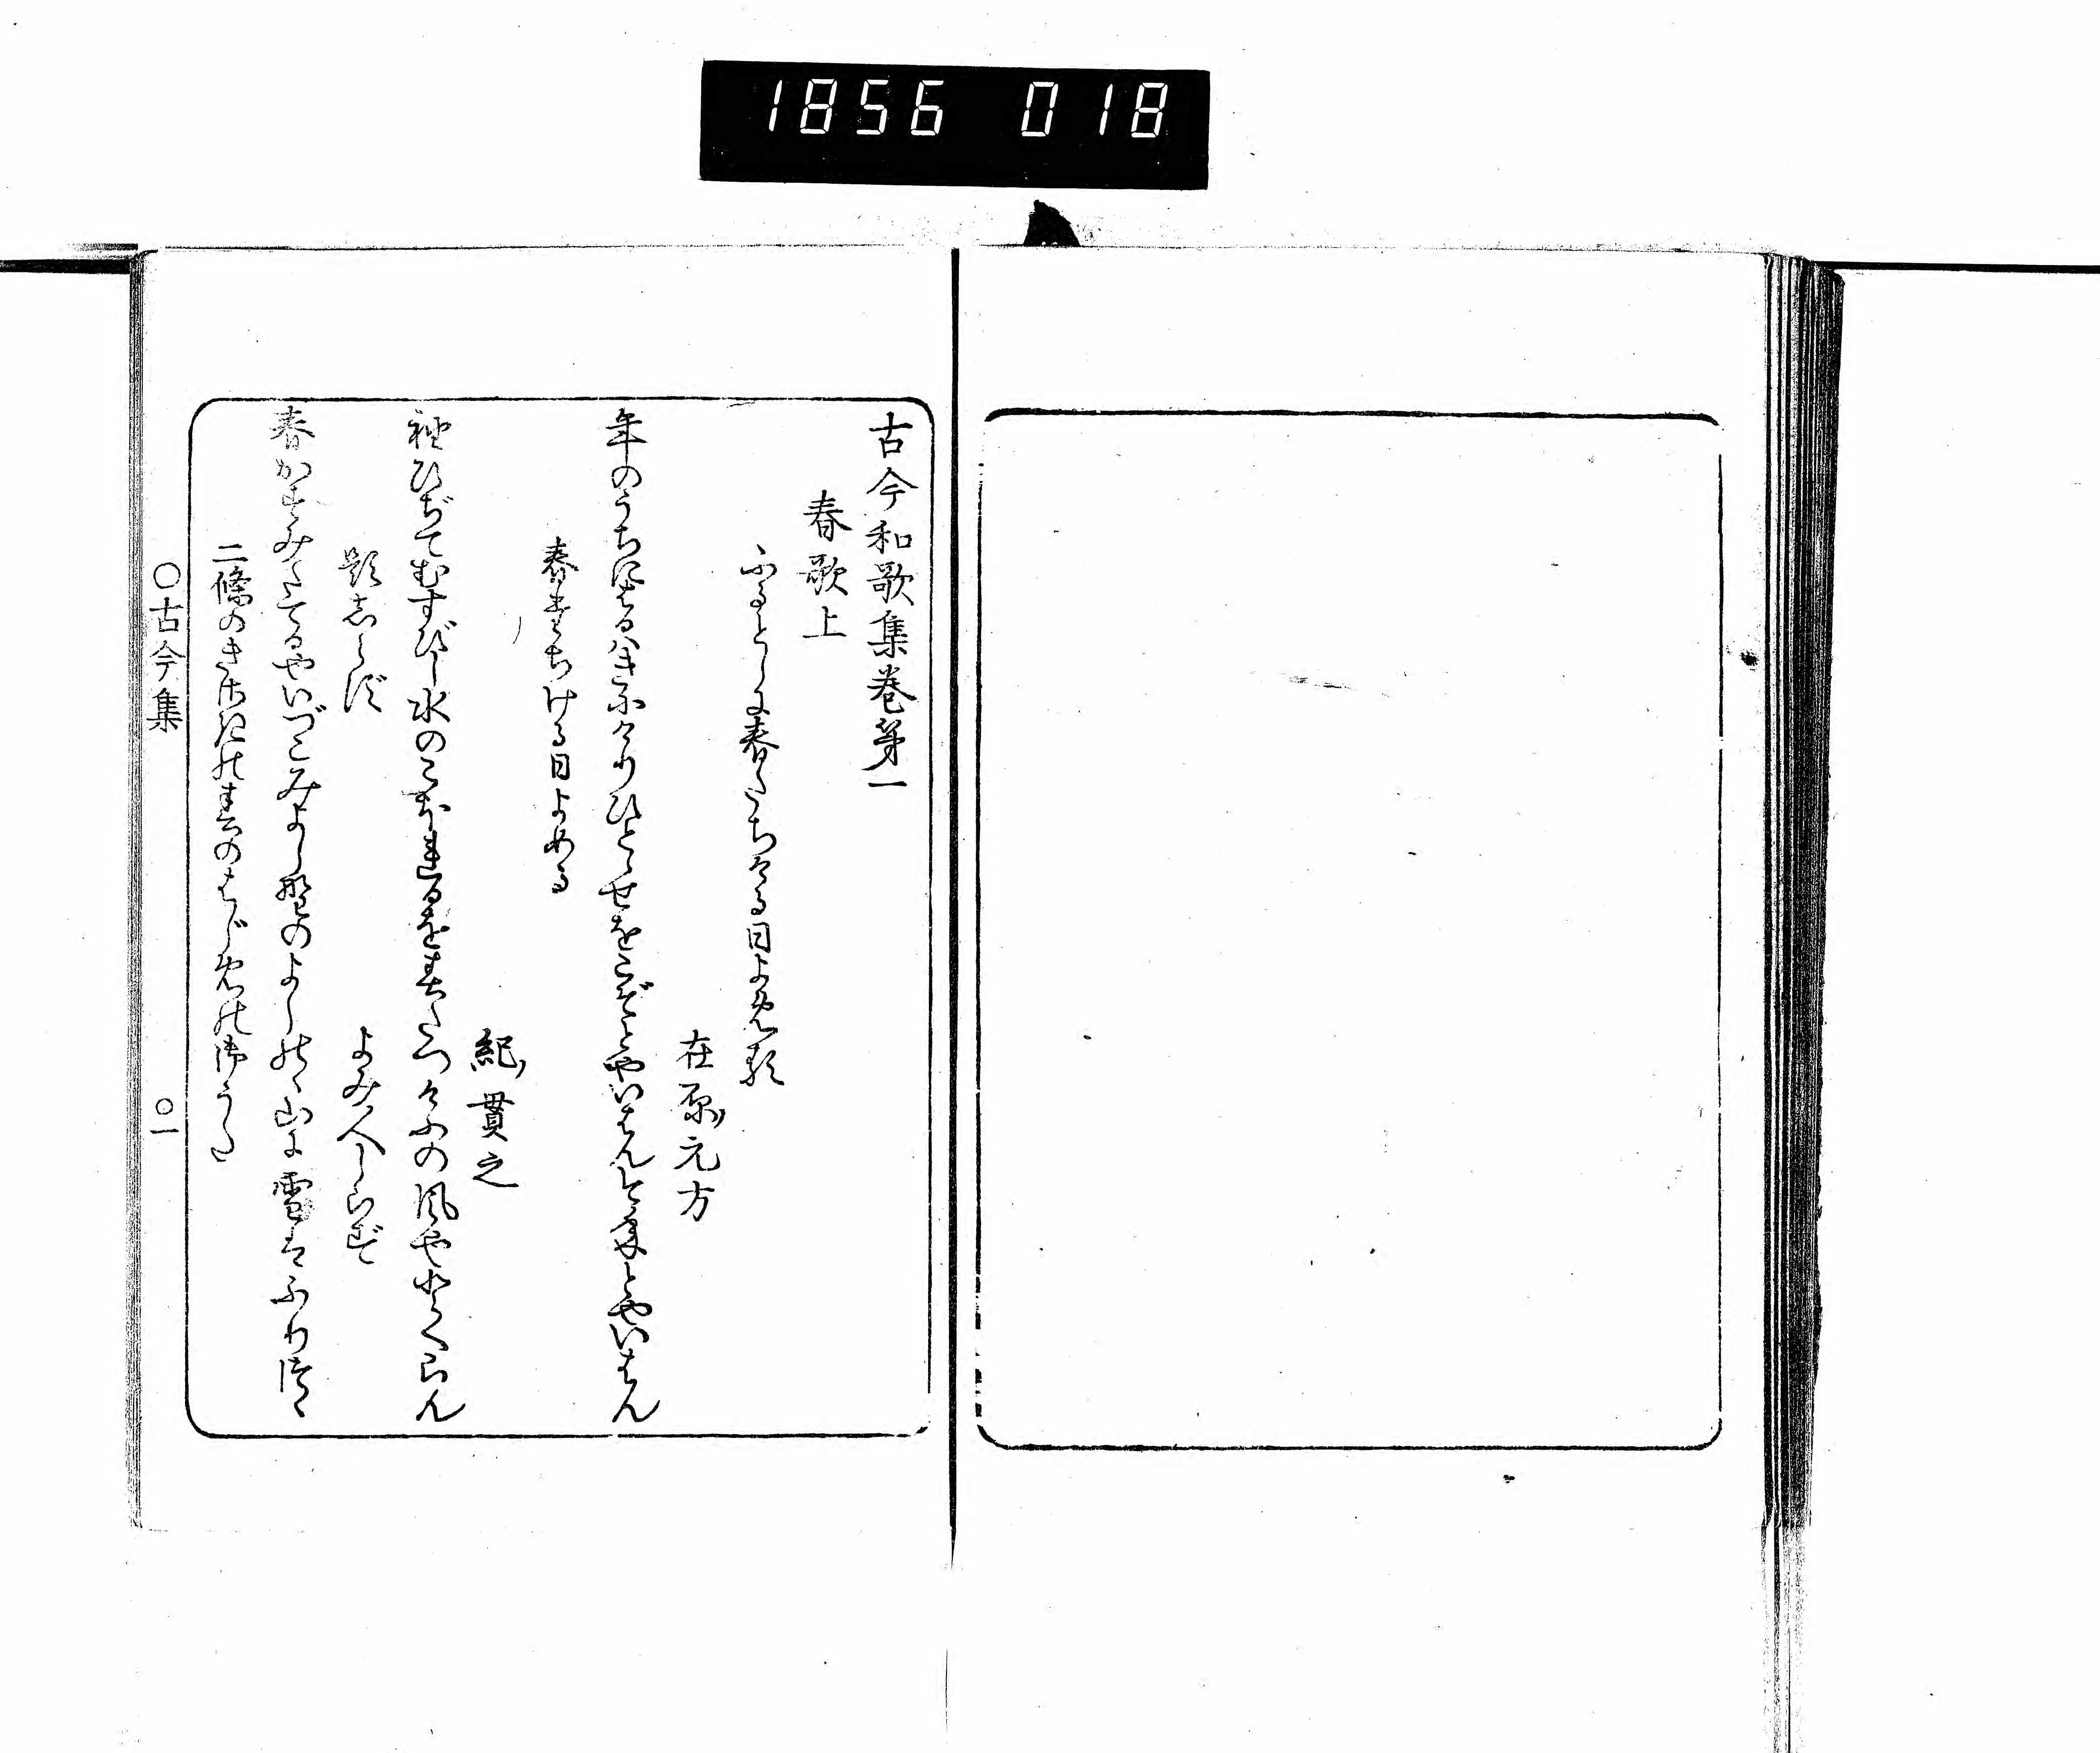 1856 018
古今和歌集巻第一
春歌上
ふるとしに春たちける日よめる
在原元方
年のうちにはるはきにけりひとゝせをこぞとやいはんことしとやいはん
春たちける日よめる
紀貫之
袖ひぢてむすびし水のこほれるを春たつけふの風やとくらん
題しらず
よみ人しらず
春かすみたてるやいづこみよし野のよしのゝ山に雪はふりつゝ
二條のきさきの春のはじめの御うた
○古今集
○一